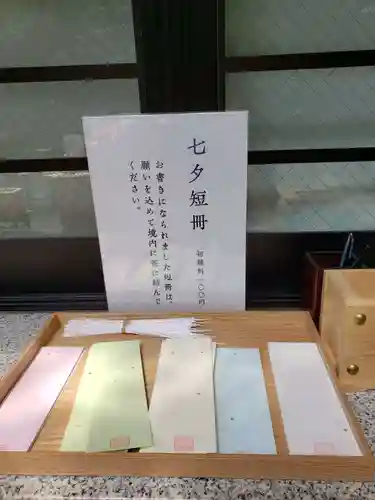 七夕短冊
初穂料 一〇〇円
お書きになられました短冊は、
願いを込めて境内に笹に結んで
ください。